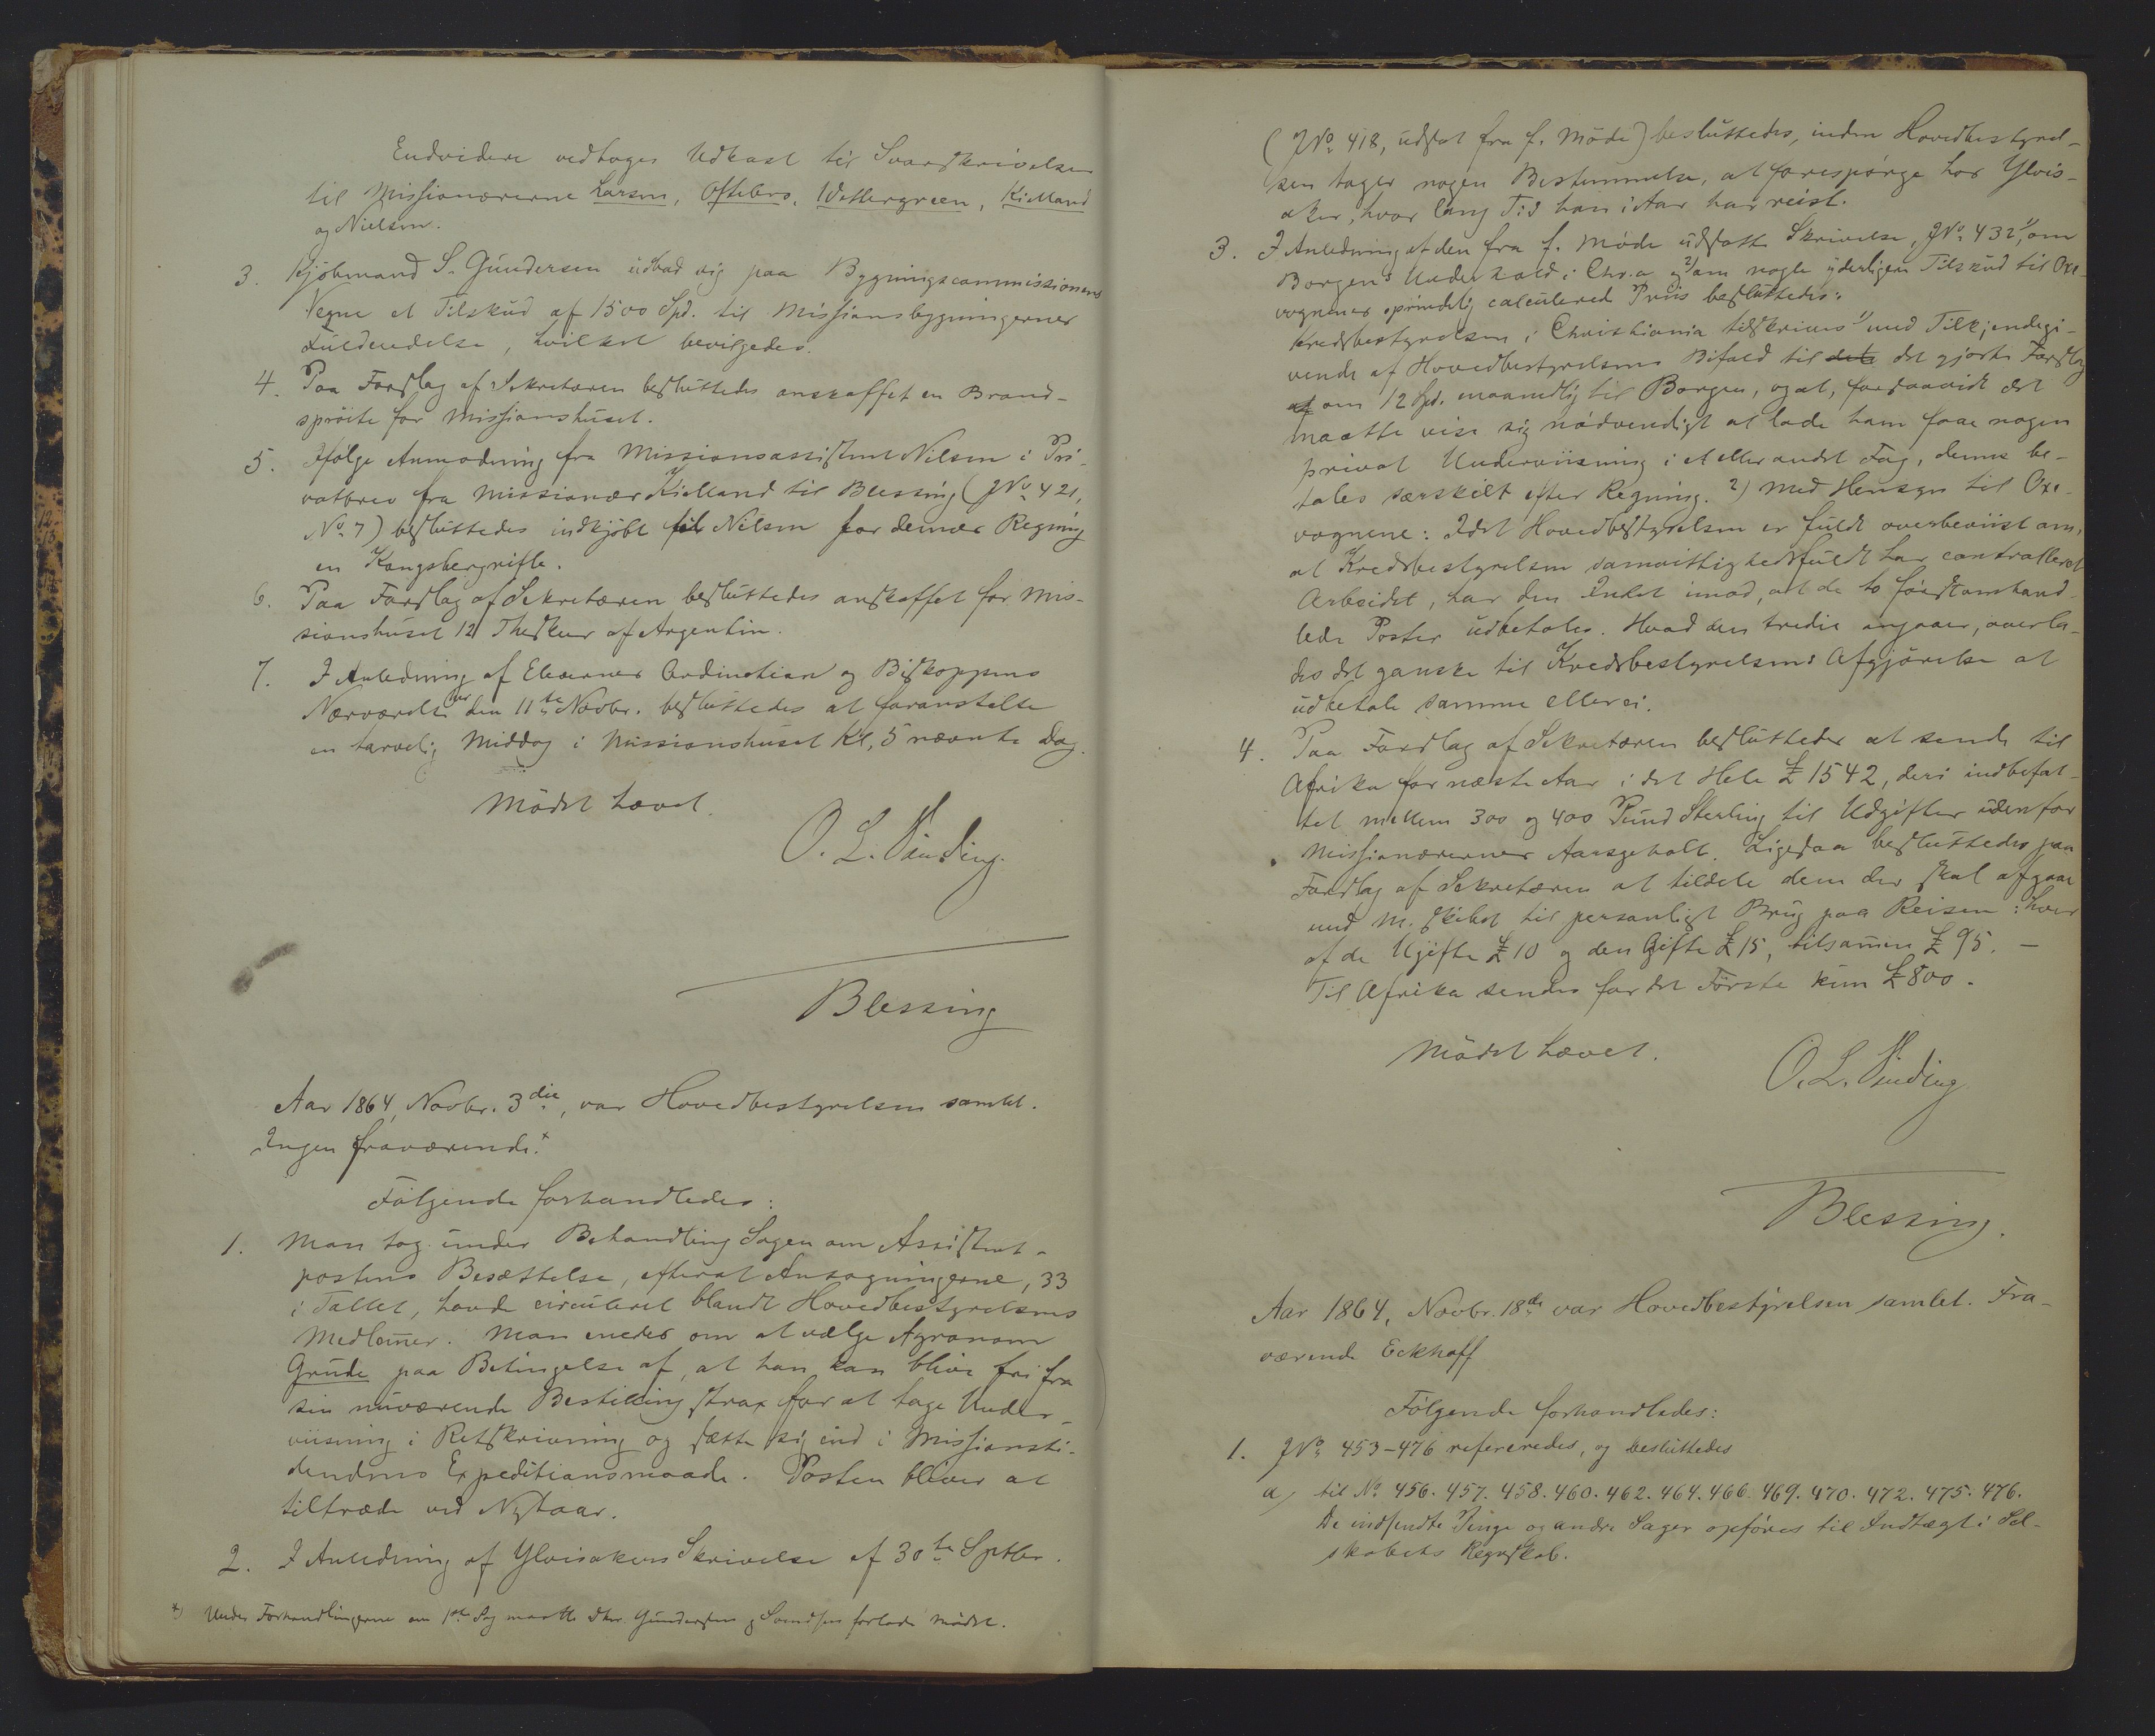 Endvidere vedtoges Udkast til Svarskrivelser
til Missionærerne Larsen, Oftebro, Wettergreen, Kielland
og Nielsen.
3. Kjøbmand S. Gundersen udbad sig paa Bygningscommissionens
Vegne et Tilskud af 1500 Spd. til Missionsbygningernes
Fuldendelse, hvilket bevilgedes.
4. Paa Forslag af Sekretæren besluttedes anskaffet en Brand-
sprøite for Missionshuset.
5. Ifølge Anmodning fra Missionsassistent Nilsen i Pri-
vatbrev fra Missionær Kielland til Blessing (JNo. 421,
No. 7) besluttedes indkjøbt til Nilsen for dennes Regning
en Kongsbergrifle.
6. Paa Forslag af Sekretæren besluttedes anskaffet for Mis-
sionshuset 12 Theskeer af Argentin.
7. I Anledning af Elevernes Ordination og Biskoppens
Nærværelse her den 11te Novbr. besluttedes at foranstalte
en tarvelig Middag i Missionshuset Kl. 5 nævnte Dag.
Mödet hævet.
O. L. Sinding.
Blessing
Aar 1864, Novbr. 3die, var Hovedbestyrelsen samlet.
Ingen fraværende.*
Følgende forhandledes:
1. Man tog under Behandling Sagen om Assistent-
postens Besættelse, efterat Ansøgningerne, 33
i Tallet, havde circuleret blandt Hovedbestyrelsens
Medlemer. Man enedes om at vælge Agronom
Grude paa Betingelse af, at han kan blive fri fra
sin nuværende Bestilling strax for at tage Under-
viisning i Retskrivning og sætte sig ind i Missionsti-
dendens Expeditionsmaade. Posten bliver at
tiltræde ved Nytaar.
2. I Anledning af Ylvisakers Skrivelse af 30te Septbr.
*) Under Forhandlingerne om 1ste Sag maatte Dhrr. Gundersen og Svendsen forlade Mødet.
(JNo. 418, udsat fra f. Möde) besluttedes, inden Hovedbestyrel-
sen tager nogen Bestemmelse, at forespørge hos Ylvis-
aker, hvor lang Tid han i Aar har reist.
3. I Anledning af den fra f. Möde udsatte Skrivelse, JNo. 432 1), om
Borgens Underhold i Chr.a og 2) om nogle yderligere Tilskud til Oxe-
vognenes oprindelig calculered Priis besluttedes:
Kredsbestyrelsen i Christiania tilskrives 1) med Tilkjendegi-
vende af Hovedbestyrelsens Bifald til det gjorte Forslag
om 12 Spd. maanedlig til Borgen, og at, forsaavidt det
maatte vise sig nødvendigt at lade ham faae nogen
privat Underviisning i et eller andet Fag, denne be-
tales særskilt efter Regning. 2) Med Hensyn til Oxe-
vognene: Idet Hovedbestyrelsen er fuldt overbeviist om,
at Kredsbestyrelsen samvittighedsfuldt har controlleret
Arbeidet, har den Intet imod, at de to førstomhand-
lede Poster udbetales. Hvad den tredie angaaer, overla-
des det ganske til Kredsbestyrelsens Afgjørelse at
udbetale samme eller ei.
4. Paa Forslag af Sekretæren besluttedes at sende til
Afrika for næste Aar i det Hele £ 1542, deri indbefat-
tet mellem 300 og 400 Pund Sterling til Udgifter udenfor
Missionærernes Aarsgehalt. Ligesaa besluttedes paa
Forslag af Sekretæren at tildele dem der skal afgaae
med M. skibet til personligt Brug paa Reisen: hver
af de Ugifte £ 10 og den Gifte £ 15, tilsamen £ 95. –
Til Afrika sendes for det Første kun £ 800.
Mödet hævet.
O. L. Sinding
Blessing.
Aar 1864, Novbr. 18de var Hovedbestyrelsen samlet. Fra-
værende Eckhoff
Følgende forhandledes:
1. JNo. 453–476 refereredes, og besluttedes
a) til No. 456. 457. 458. 460. 462. 464. 466. 469. 470. 472. 475. 476.
De indsendte Penge og andre Sager opføres til Indtægt i Sel-
skabets Regnskab.